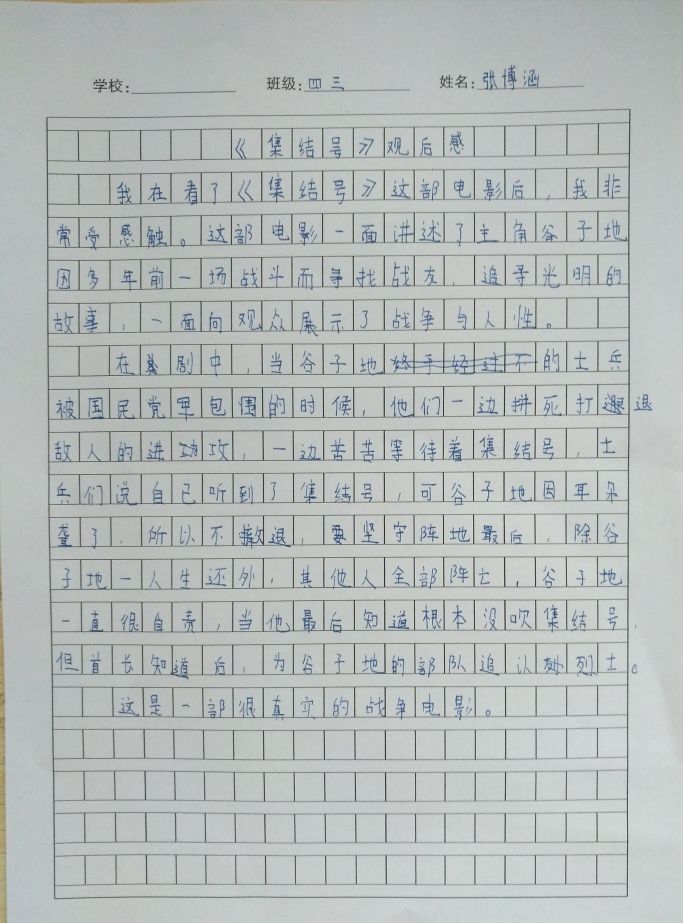 学校: 班级:四三 姓名:张博涵
《集结号》观后感
我在看了《集结号》这部电影后,我非
常受感触。这部电影一面讲述了主角谷子地
因多年前一场战斗而寻找战友,追寻光明的
故事,一面向观众展示了战争与人性。
在剧中,当谷子地的士兵
被国民党军包围的时候,他们一边拼死打退
敌人的进攻,一边苦苦等待着集结号,士
兵们说自己听到了集结号,可谷子地因耳朵
聋了,所以不撤退,要坚守阵地最后,除谷
子地一人生还外,其他人全部阵亡,谷子地
一直很自责,当他最后知道根本没吹集结号,
但首长知道后,为谷子地的部队追认烈士。
这是一部很真实的战争电影。